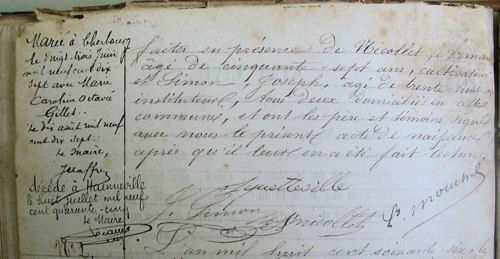 Marié à Cherbourg
le vingt trois juin
mil neuf cent dix
sept avec Marie
Caroline Octavie
Gillet.
Le dix août mil neuf
cent dix sept.
Le Maire,
décédé à Hainneville
le huit juillet mil neuf
cent quarante-cinq
Le Maire
faites en présence de Nicollet,
âgé de cinquante-sept ans, cultivateur
et Simon, Joseph, âgé de trente huit
instituteur, tous deux domiciliés en
commune, et ont les père et témoins signé
avec nous le présent acte de naissance
après qu'il leur en a été fait lecture.
J. Simon
Nicollet
L'an mil huit cent soixante-six, le